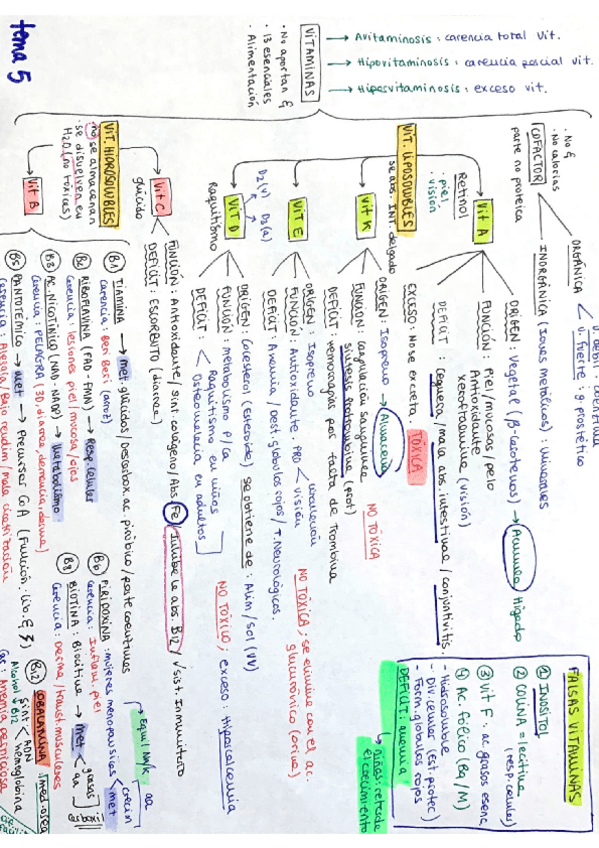 tema 5
VITAMINAS
· No aportan E
· 13 esenciales
· Alimentación
→ Avitaminosis: carencia total vit.
→ Hipovitaminosis: carencia parcial vit.
→ Hipervitaminosis: exceso vit.
COFACTOR
· No E
· No calorías
parte no proteica
ORGÁNICA
U. debil: coenzima
U. fuerte: g. prostético
INORGÁNICA (Iones metálicos): minerales
VIT. LIPOSOLUBLES
se abs. INT. delgado
Vit A
Retinol
· piel
· visión
ORIGEN: Vegetal (β-carotenos) → Almacena Hígado
FUNCIÓN: Piel/mucosas/pelo
Antioxidante
xeroftalmina (visión)
DEFICIT: Ceguera/mala abs. intestinal/conjuntivitis.
EXCESO: No se excreta TÓXICA
Vit K
ORIGEN: Isopreno → Almacena
FUNCIÓN: coagulación sanguínea
síntesis protrombina (prot)
DEFICIT: hemorragias por falta de Trombina
NO TÓXICA
Vit E
ORIGEN: Isopreno
FUNCIÓN: Antioxidante. PRO
visión
DEFICIT: Anemia/Dest. glóbulos rojos/T. Neurológicos.
NO TÓXICA; se elimina con el ac.
glucurónico (orina)
Vit D
D2 (v) D3 (a)
Raquitismo
ORIGEN: Colesterol (Esteroide) se obtiene de: Alim/sol (UV)
FUNCIÓN: metabolismo P/Ca
DÉFICIT: Raquitismo en niños
Osteomalacia en adultos
NO TÓXICO; exceso: Hipercalcemia
VIT. HIDROSOLUBLES
no se almacenan
· se disuelven en
H2O (no tóxicas)
Vit C
glúcido
FUNCIÓN: Antioxidante/Sint. colágeno/Abs Fe/Inhibe la abs. B12/√ sist. Inmunitario
DEFICIT: ESCORBUTO (diarrea)
Vit B
B1 TIAMINA → met. glúcidos/
carencia: Beri Beri (arroz)
B2 RIBOFLAVINA (FAD-FMN) → Resp. celular
Carencia: lesiones piel/mucosa/ojos
B3 AC. NICOTÍNICO (NAD-NADP) → Metabolismo
Carencia: PELAGRA (3D, diarrea, demencia, derma)
B5 PANTOTÉMICO → met → Precursor CoA
carencia: Alergia/Bajo rendim/mala cicatrización
B6 PIRIDOXINA: mujeres menopausicas/met
aa
crecim
Equil Na/K
Carencia: Inflam. piel
B8 BIOTINA: Biocitina → met
grasas
aa
Carencia: Derma/trans musculares
B12 COBALAMINA
SÍNT ADN
Hemoglobina
Alcohol ↓ B12
Car: Anemia perniciosa
FALSAS VITAMINAS
① INOSITOL
② COLINA = lecitina
(resp. celular)
③ Vit F. ac. grasos esenc
④ AC. fólico (B9/M)
- Hidrosoluble
- Div. celular (est. protec)
- Form. glóbulos rojos
DÉFICIT: anemia
niños: retraso
el crecimiento